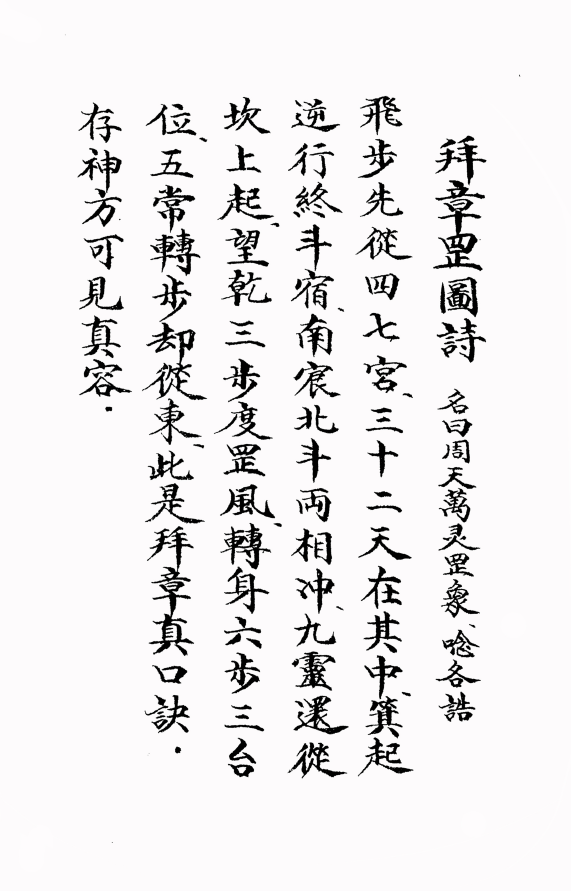 拜章罡圖詩 名曰周天萬灵罡象、唸各誥
飛步先從四七宮、三十二天在其中、箕起
逆行終斗宿、南宸北斗両相冲、九靈還從
坎上起、望乾三步度罡風、轉身六步三台
位、五常轉步却從東、此是拜章真口訣.
存神方可見真容.